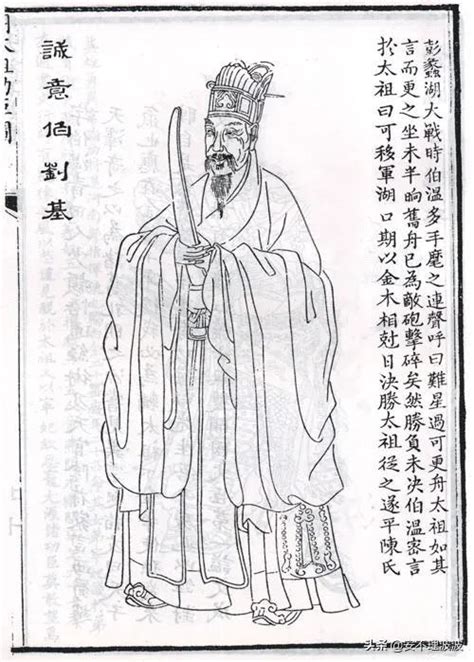 彭蠡湖大戰時伯溫多手麾之連聲呼曰難星過可更舟太祖如其
言而更之坐未半晌舊舟已為敵砲擊碎矣然勝負未决伯溫密言
扵太祖曰可移軍湖口期以金木相尅日決勝太祖從之遂平陳氏
誠意伯劉基
头条 @安不理波波